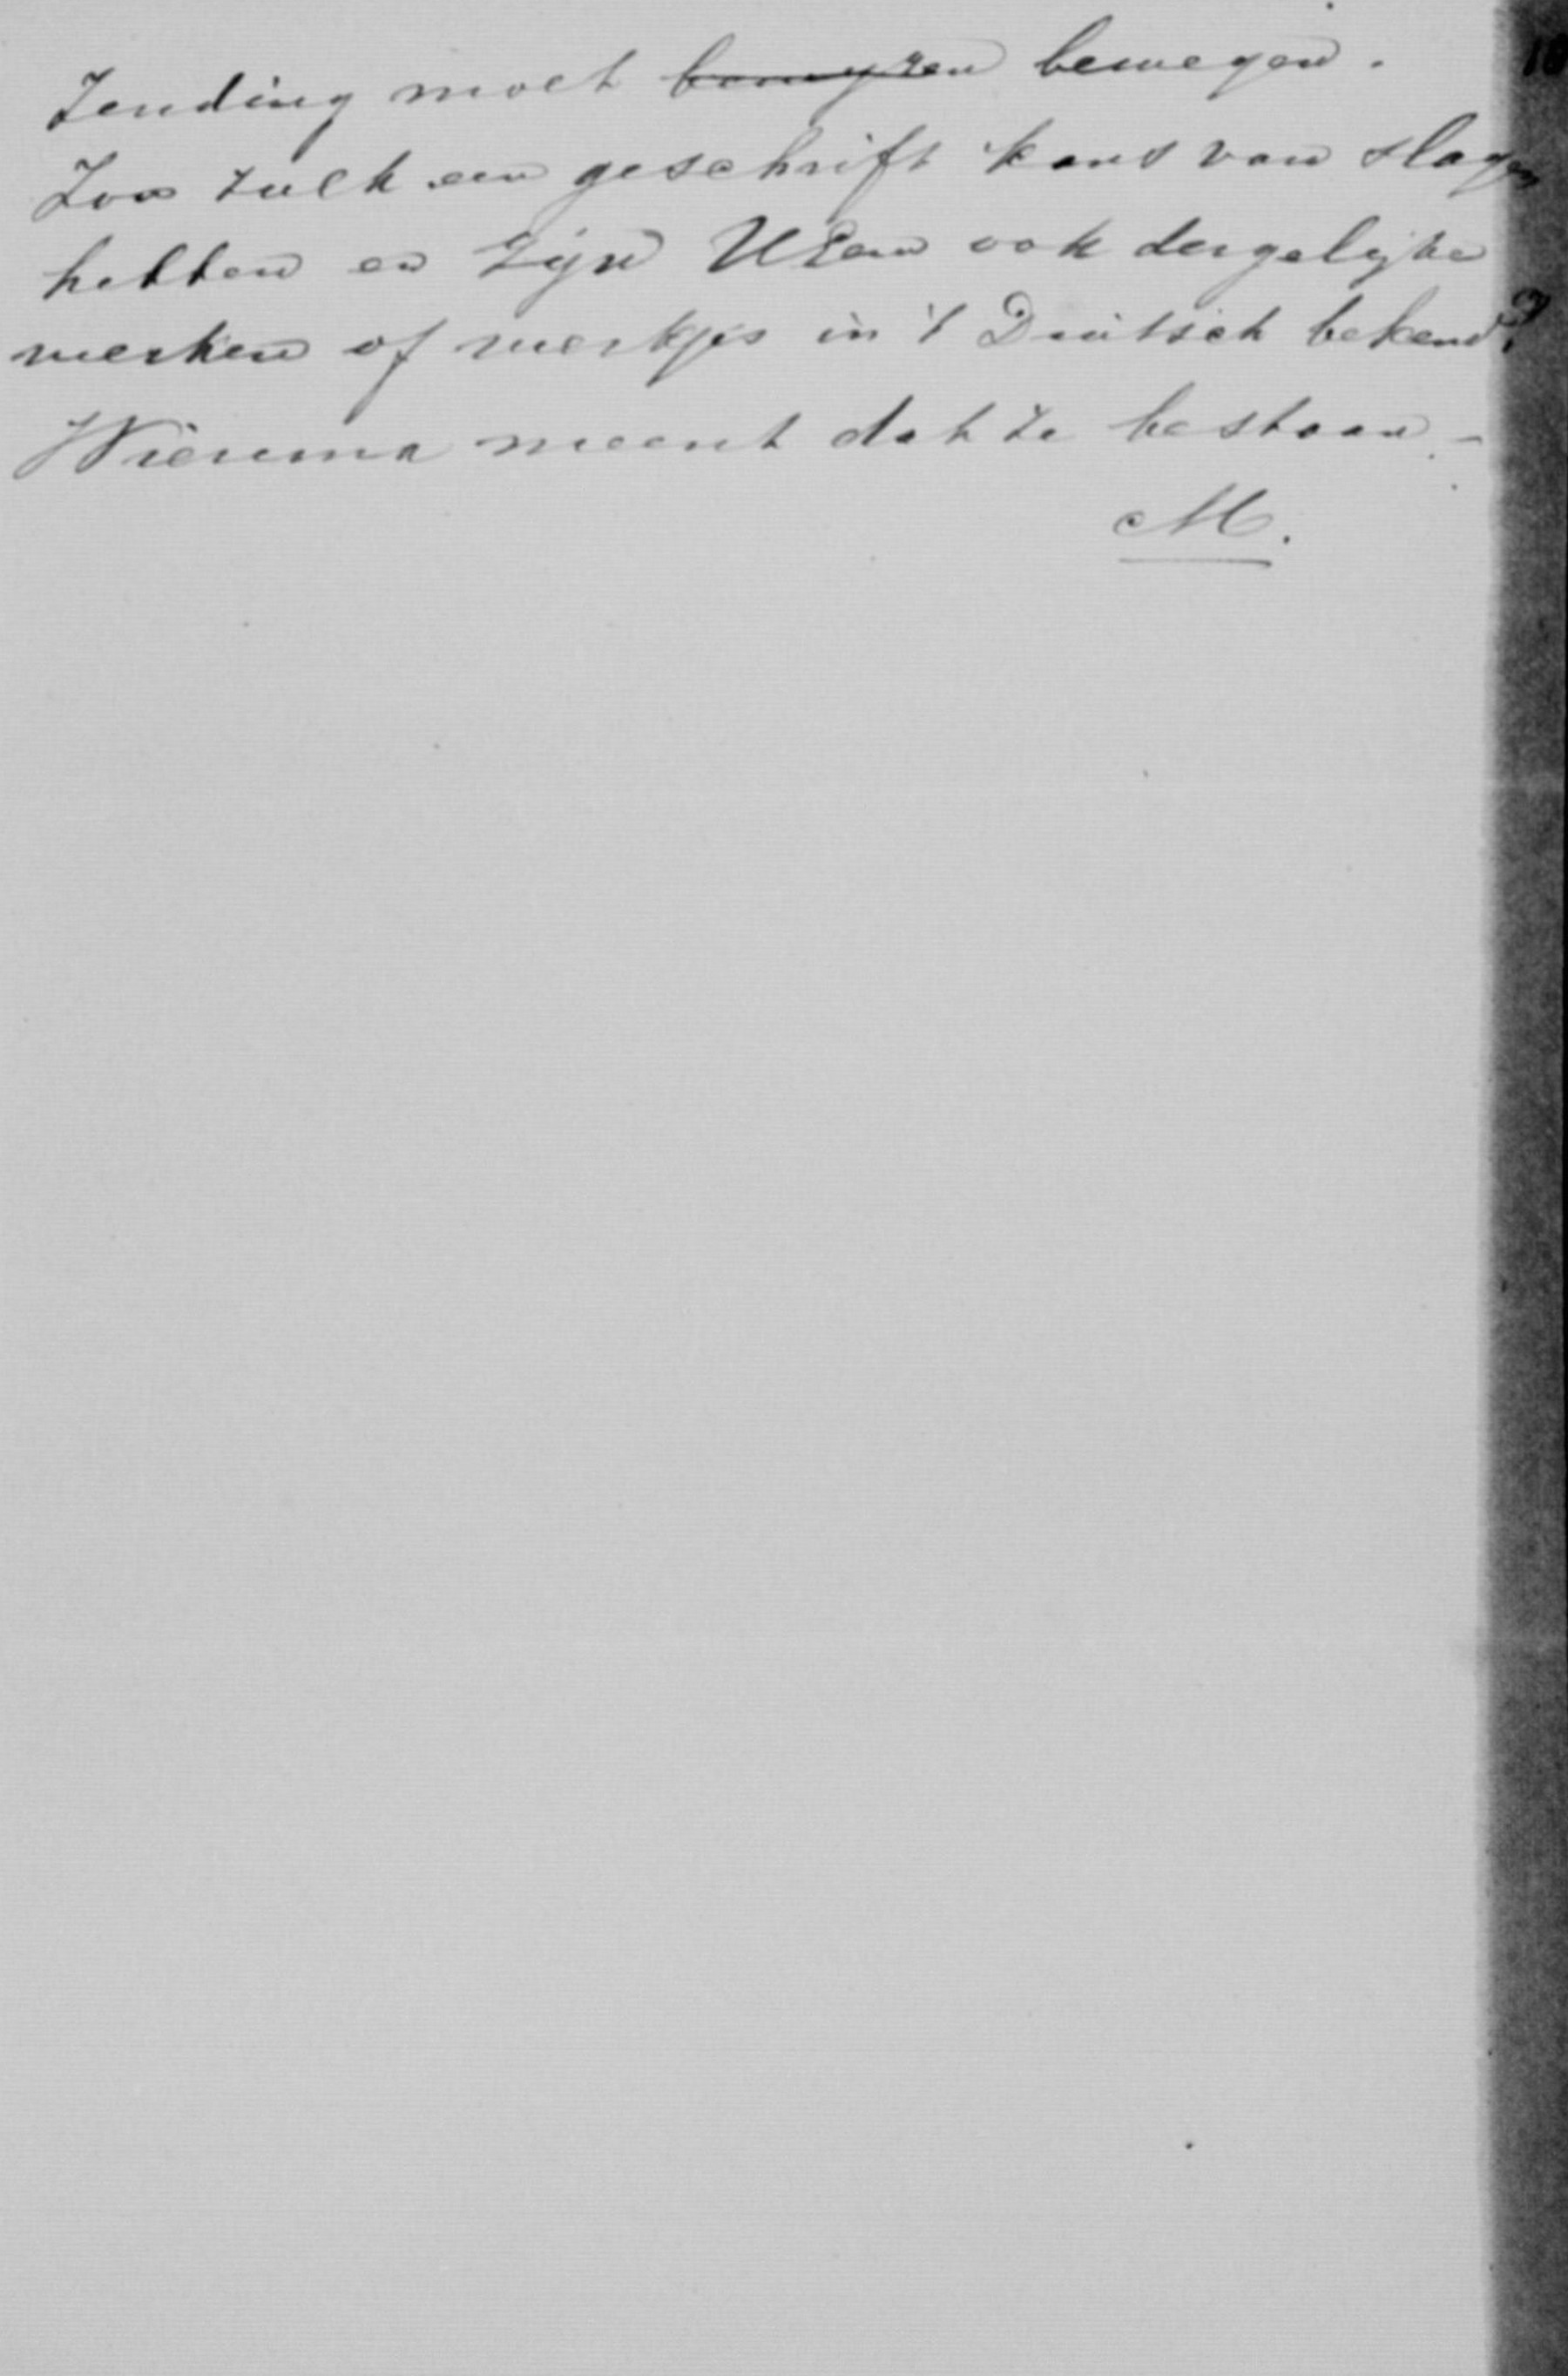 Zending moet bewegen.
Zou zulk een geschrift kans van slagen
hebben en zijn UEerw ook dergelijke
werken of werkjes in 't Duitsch bekend?
Wiersma meent dat ze bestaan.-
M.